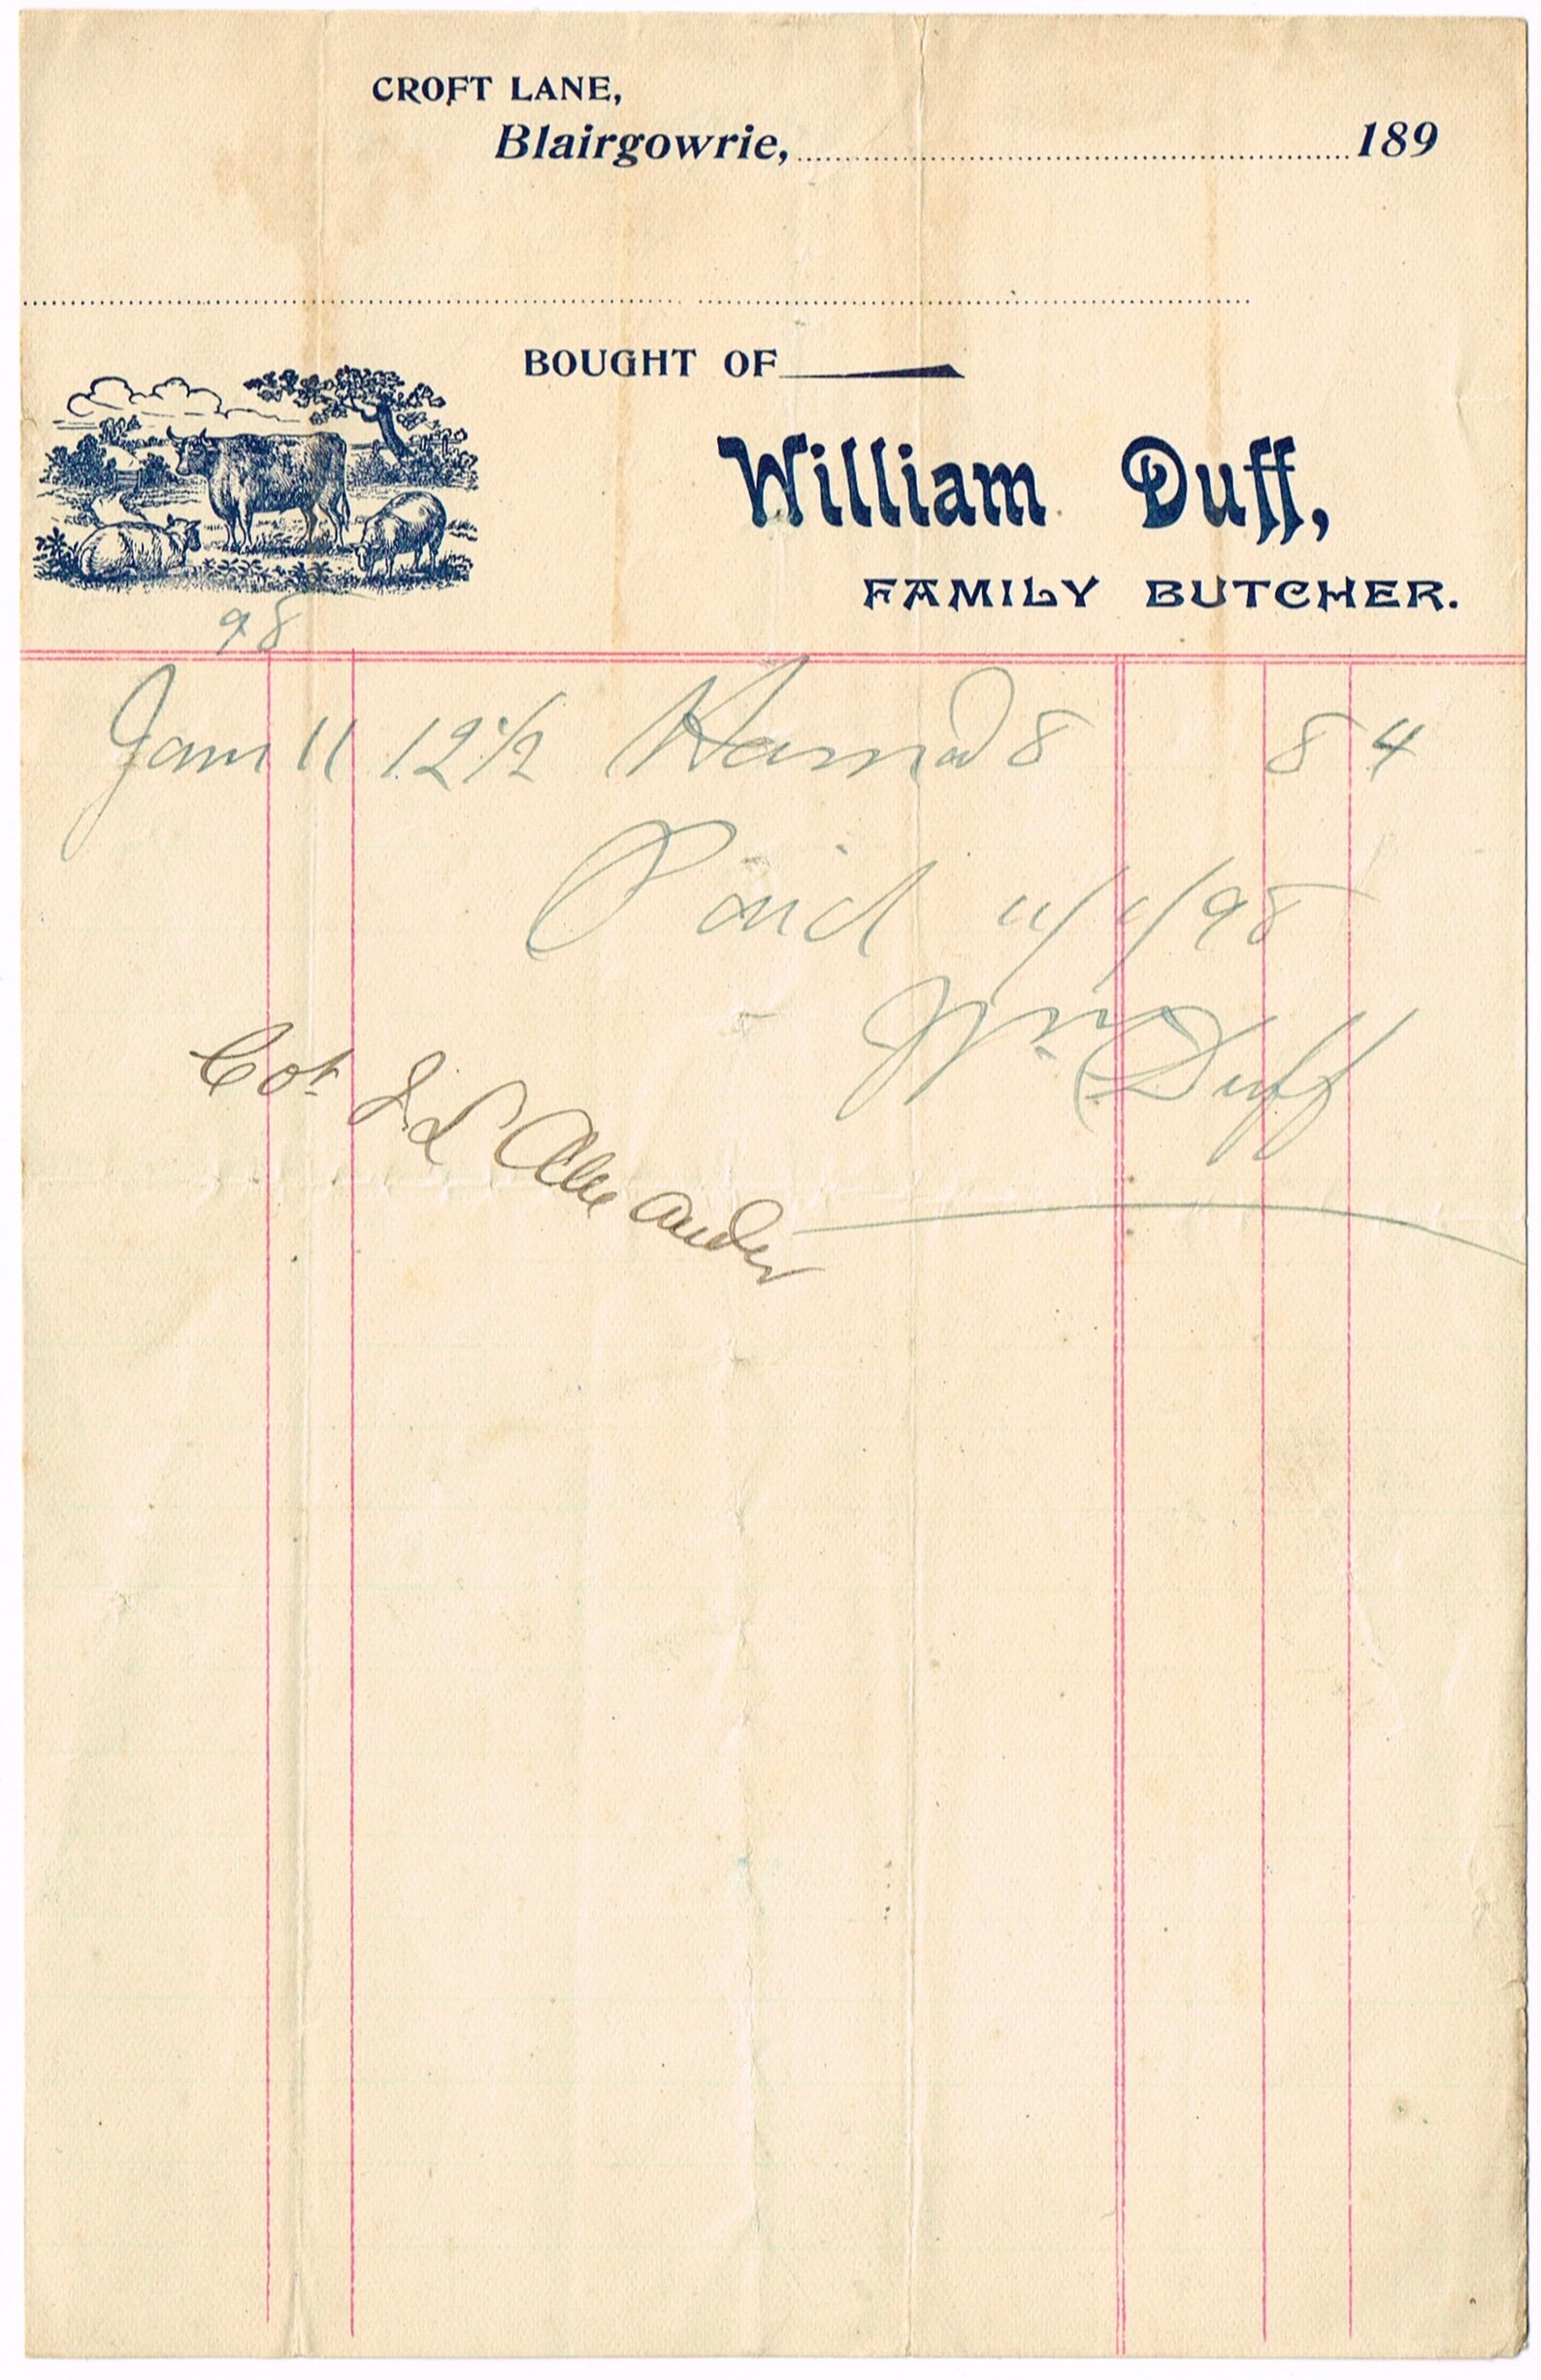 CROFT LANE,
Blairgowrie, 189
BOUGHT OF
William Duff,
FAMILY BUTCHER.
98
Jan 11 12 1/2 Ham @ 8 8 4
Paid 11/1/98
Wm Duff
J. L. Alexander